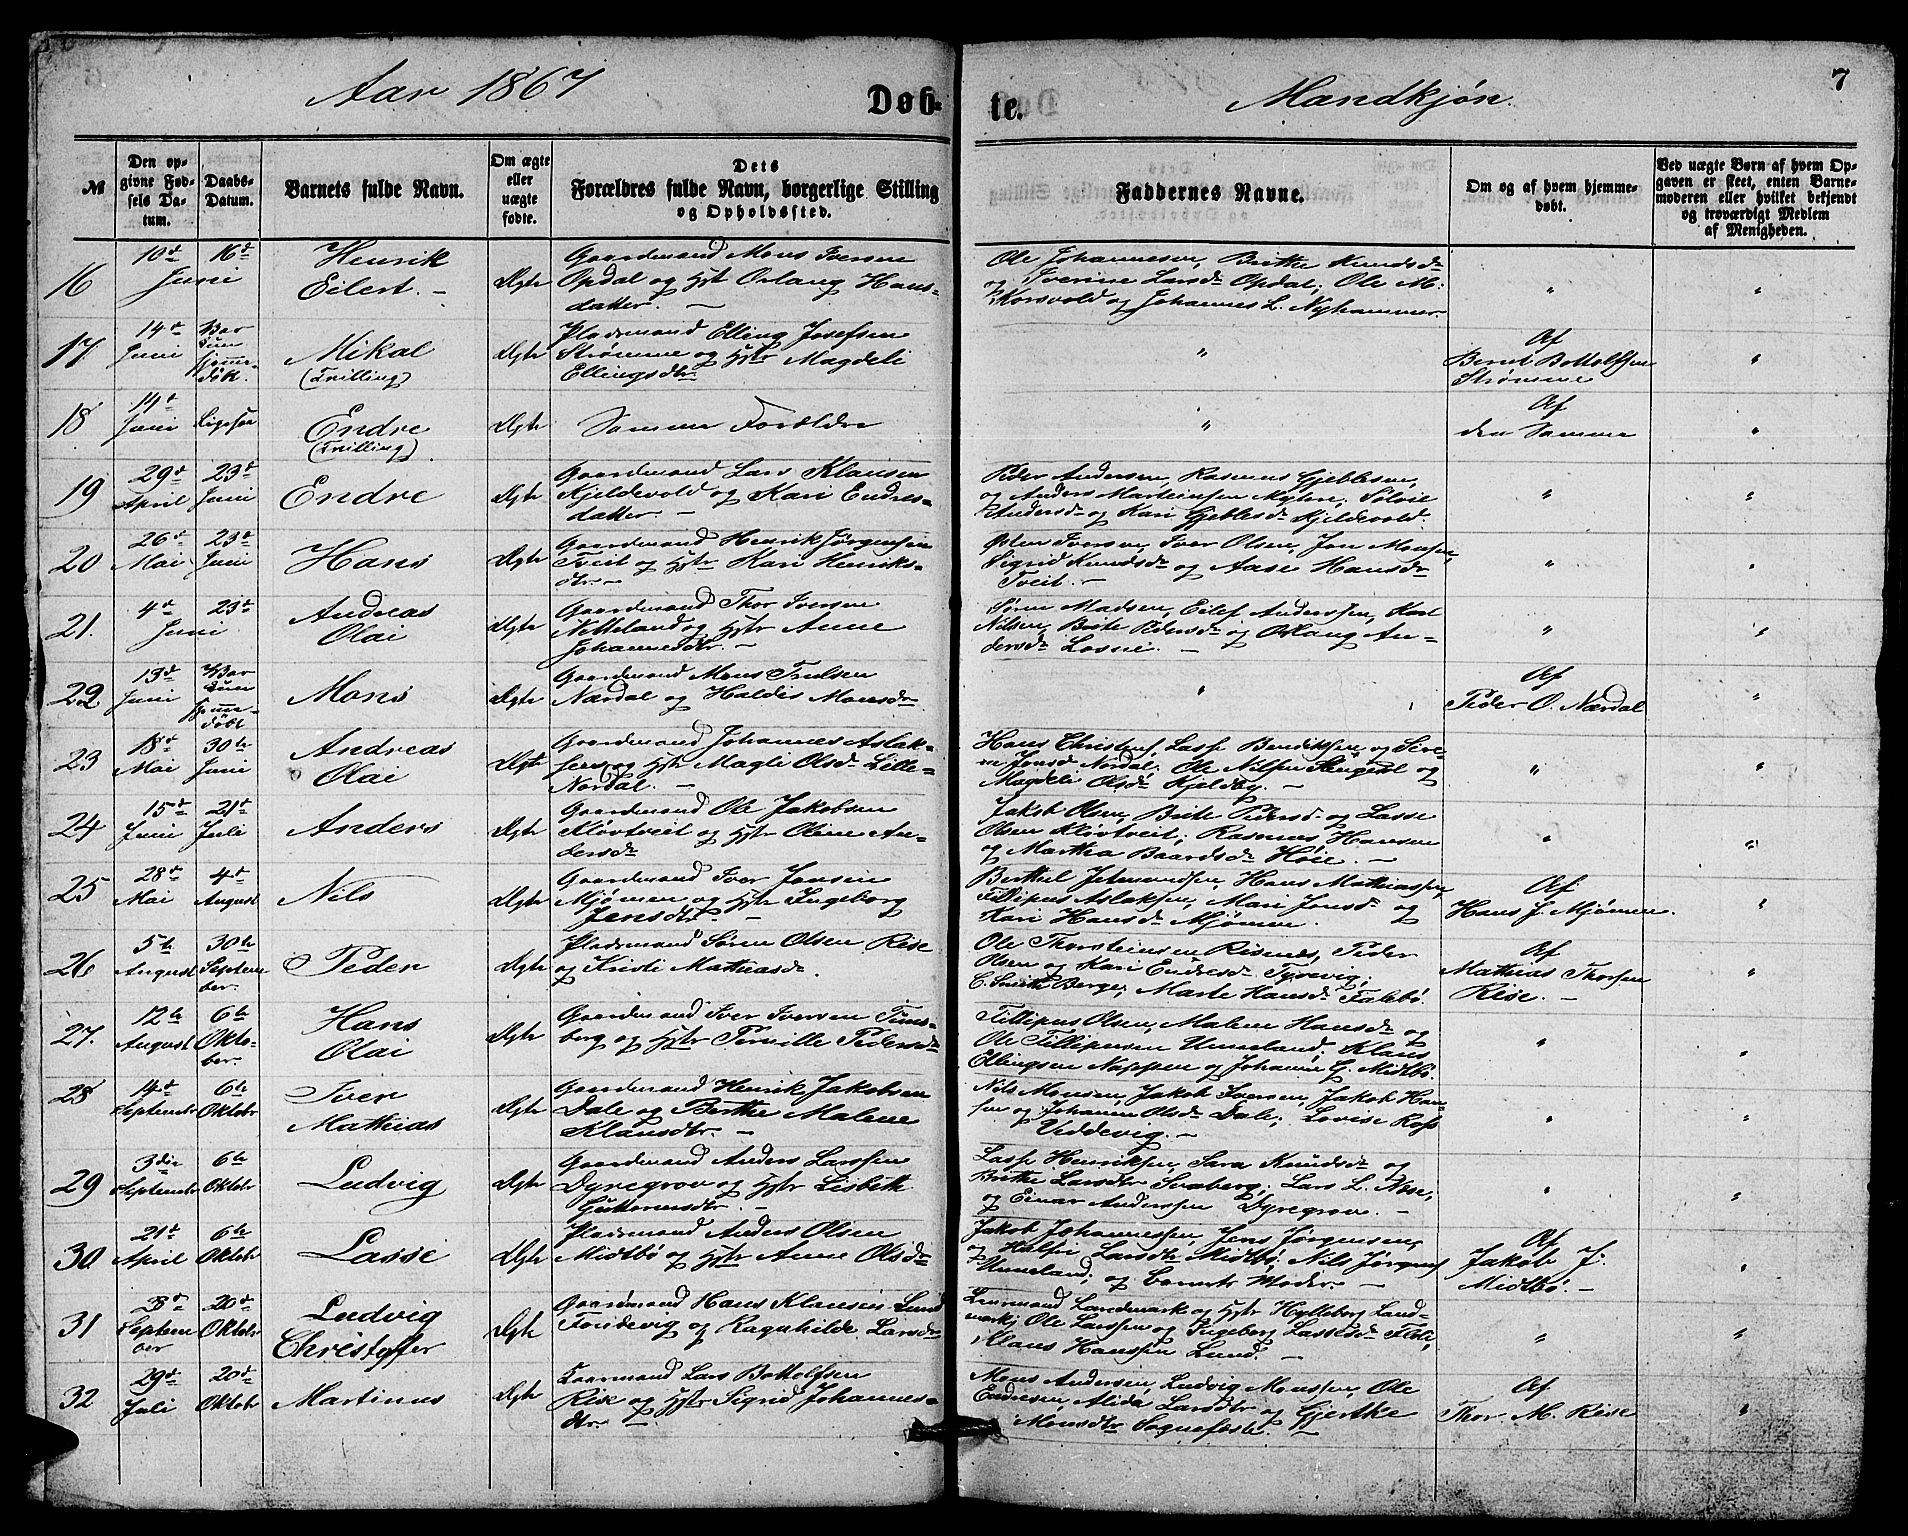 Aar 1867
Døb-
te.
Mandkjøn.
7
№
Den op-
givne Fød-
sels Da-
tum.
Daabs-
Datum.
Barnets fulde Navn.
Om ægte
eller
uægte
fødte.
Dets
Forældres fulde Navn, borgerlige Stilling
og Opholdssted.
Faddernes Navne.
Om og af hvem hjemme-
døbt.
Ved uægte Børn af hvem Op-
gaven er skeet, enten Barne-
moderen eller hvilket bekjendt
og troværdigt Medlem
af Menigheden.
16
10d
Juni
16d
Henrik
Eilert. -
Ægte
Gaardmand Mons Iversen
Opdal og Hstr Orlaug Hans-
datter. -
Ole Johannesen, Brithe Knudsdr
og Iverine Larsdr Opdal; Ole M.
Korsvold og Johannes L. Nyhammer
"
"
17
14d
Juni
Mikal
(Tvilling)
Ægte
Pladsmand Elling Josefsen
Strømme og Hstr Magdeli
Ellingsdtr
"
Af
Bernt Bottolfsen
Strømme
"
18
14d
Juni
Ligesaa
Endre
(Tvilling)
Ægte
Samme Forældre
"
Af
den Samme
"
19
29d
April
23d
Juni
Endre
Ægte
Gaardmand Lars Klausen
Kjeldevold og Kari Endres-
datter. -
Peder Andersen, Rasmus Gjeblesen,
og Anders Marteinsen Myhre; Sølvie
Andersdr og Kari Gjeblesdr Kjeldevold.
"
"
20
26d
Mai
23d
Juni
Hans
Ægte
Gaardmand Henrik Jørgensen
Tveit og Hstr Kari Henriks-
dtr. -
Iversen, Iver Olsen, Jon Monsen,
Sigrid Knudsdr og Aase Hansdr
Tveit. -
"
"
21.
4d
Juni
23d
Andreas
Olai
Ægte
Gaardmand Thor Iversen
Netteland og Hstr Anne
Johannesdtr. -
Søren Madsen, Eilef Anderssen, Karl
Nilsen, Brite Pedersdr og Orlaug An-
dersdr Losne. -
"
"
22
13d
Juni
Mons
Ægte
Gaardmand Mons Trulsen
Nærdal og Haldis Monsdr
"
Af
Peder O. Nærdal
"
23
18d
Mai
30te
Juni
Andreas
Olai
Ægte
Gaardmand Johannes Aslak-
sen og Hstr Magli Olsdr Lille-
Nordal. -
Hans Christens, Lasse Bendiktsen og Sire-
Jonsdr Nordal; Ole Nilsen og
Magdeli Olsdr Kjeldby. -
"
"
24
15d
Juni
21d
Juli
Anders
Ægte
Gaardmand Ole Jakobsen
Kløvtveit og Hstr Oline An-
dersdr
Jakob Olsen, Brite Pedersdr og Lasse
Olsen Kløvtveit; Rasmus Hansen
og Martha Baardsdr Høie. -
"
"
25
28d
Mai
4d
August
Nils
Ægte
Gaardmand Iver Jensen
Mjømen og Hstr Ingeborg
Jensdtr. -
Berthel Hans Mathiassen,
Fillipus Aslaksen, Mari Jonsdr og
Kari Hansdr Mjømen.
Af
Hans J. Mjømen.
"
26
5te
August
30te
Septem
ber.
Peder
Ægte
Pladsmand Søren Olsen Rise
og Kristi Mathiasdr.
Ole Thorsteinsen Risenæs, Peder
Olsen og Kari Endresdr Tyvevig;
C. Smith Berge; Marte Hansdr Falebø.
Af
Mathias Thorsen
Rise. -
"
27.
12te
August
6te
Okto-
ber.
Hans
Olai
Ægte
Gaardmand Iver Iversen Tuns-
berg og Hstr Pernille Pedersdr
Fillipus Olsen, Malene Hansdr og
Ole Fillipusen Unneland; Klaus
Ellingsen Nappen og Johanne G. Midtbø
"
"
28
14d
Septembr
6te
Oktobr
Iver
Mathias
Ægte
Gaardmand Henrik Jakobsen
Dale og Berthe Malene
Klausdtr. -
Nils Monsen, Jakob Iversen, Jakob Han-
sen og Johanne Olsdr Dale; Lovise Ross
Veddevig. -
"
"
29
3die
Septembr
6te
Oktobr
Ludvig
Ægte
Gaardmand Anders Larssen
Dyregrov og Hstr Lisbeth
Guttormsdtr. -
Lasse Henriksen, Sara Knudsdr og
Brithe Larsdtr Svaberg; Lars L. Nese,
og Einar Anderssen Dyregrov. -
"
"
30
21d
April
6te
Oktobr
Lasse
Ægte
Pladsmand Anders Olsen
Midtbø og Hstr Anne Olsdr
Jakob Johannessen, Jens Jørgensen,
og Larsdtr Midtbø; Nils Jørgens
Unneland; og Barnets Moder. -
Af
Jakob J.
Midtbø. -
"
31
3d
Septem
ber
20d
Oktobr
Ludvig
Christoffer
Ægte
Gaardmand Hans Klausen Lund
Tondevig og Ragnhilde Larsdtr
Lensmand Landmark og Hstr Hylleborg Land-
mark; Ole Larssen og Ingeborg Lassesdr Flole,
Klaus Hanssen Lund. -
"
"
32
29d
Juli
20d
Oktobr
Martinus
Ægte
Gaarmand Lars Bottolfsen
Rise og Hstr Sigrid Johannes-
dtr. -
Mons Andersen, Ludvig Monssen, Ole
Endresen, Alida Larsdtr og Gjertke
Monsdtr Sognefæste. -
Af
Thor. M. Rise
"